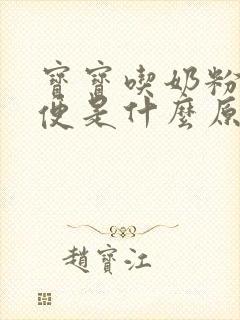 寶寶喫奶粉
便是什麼原
趙寶江